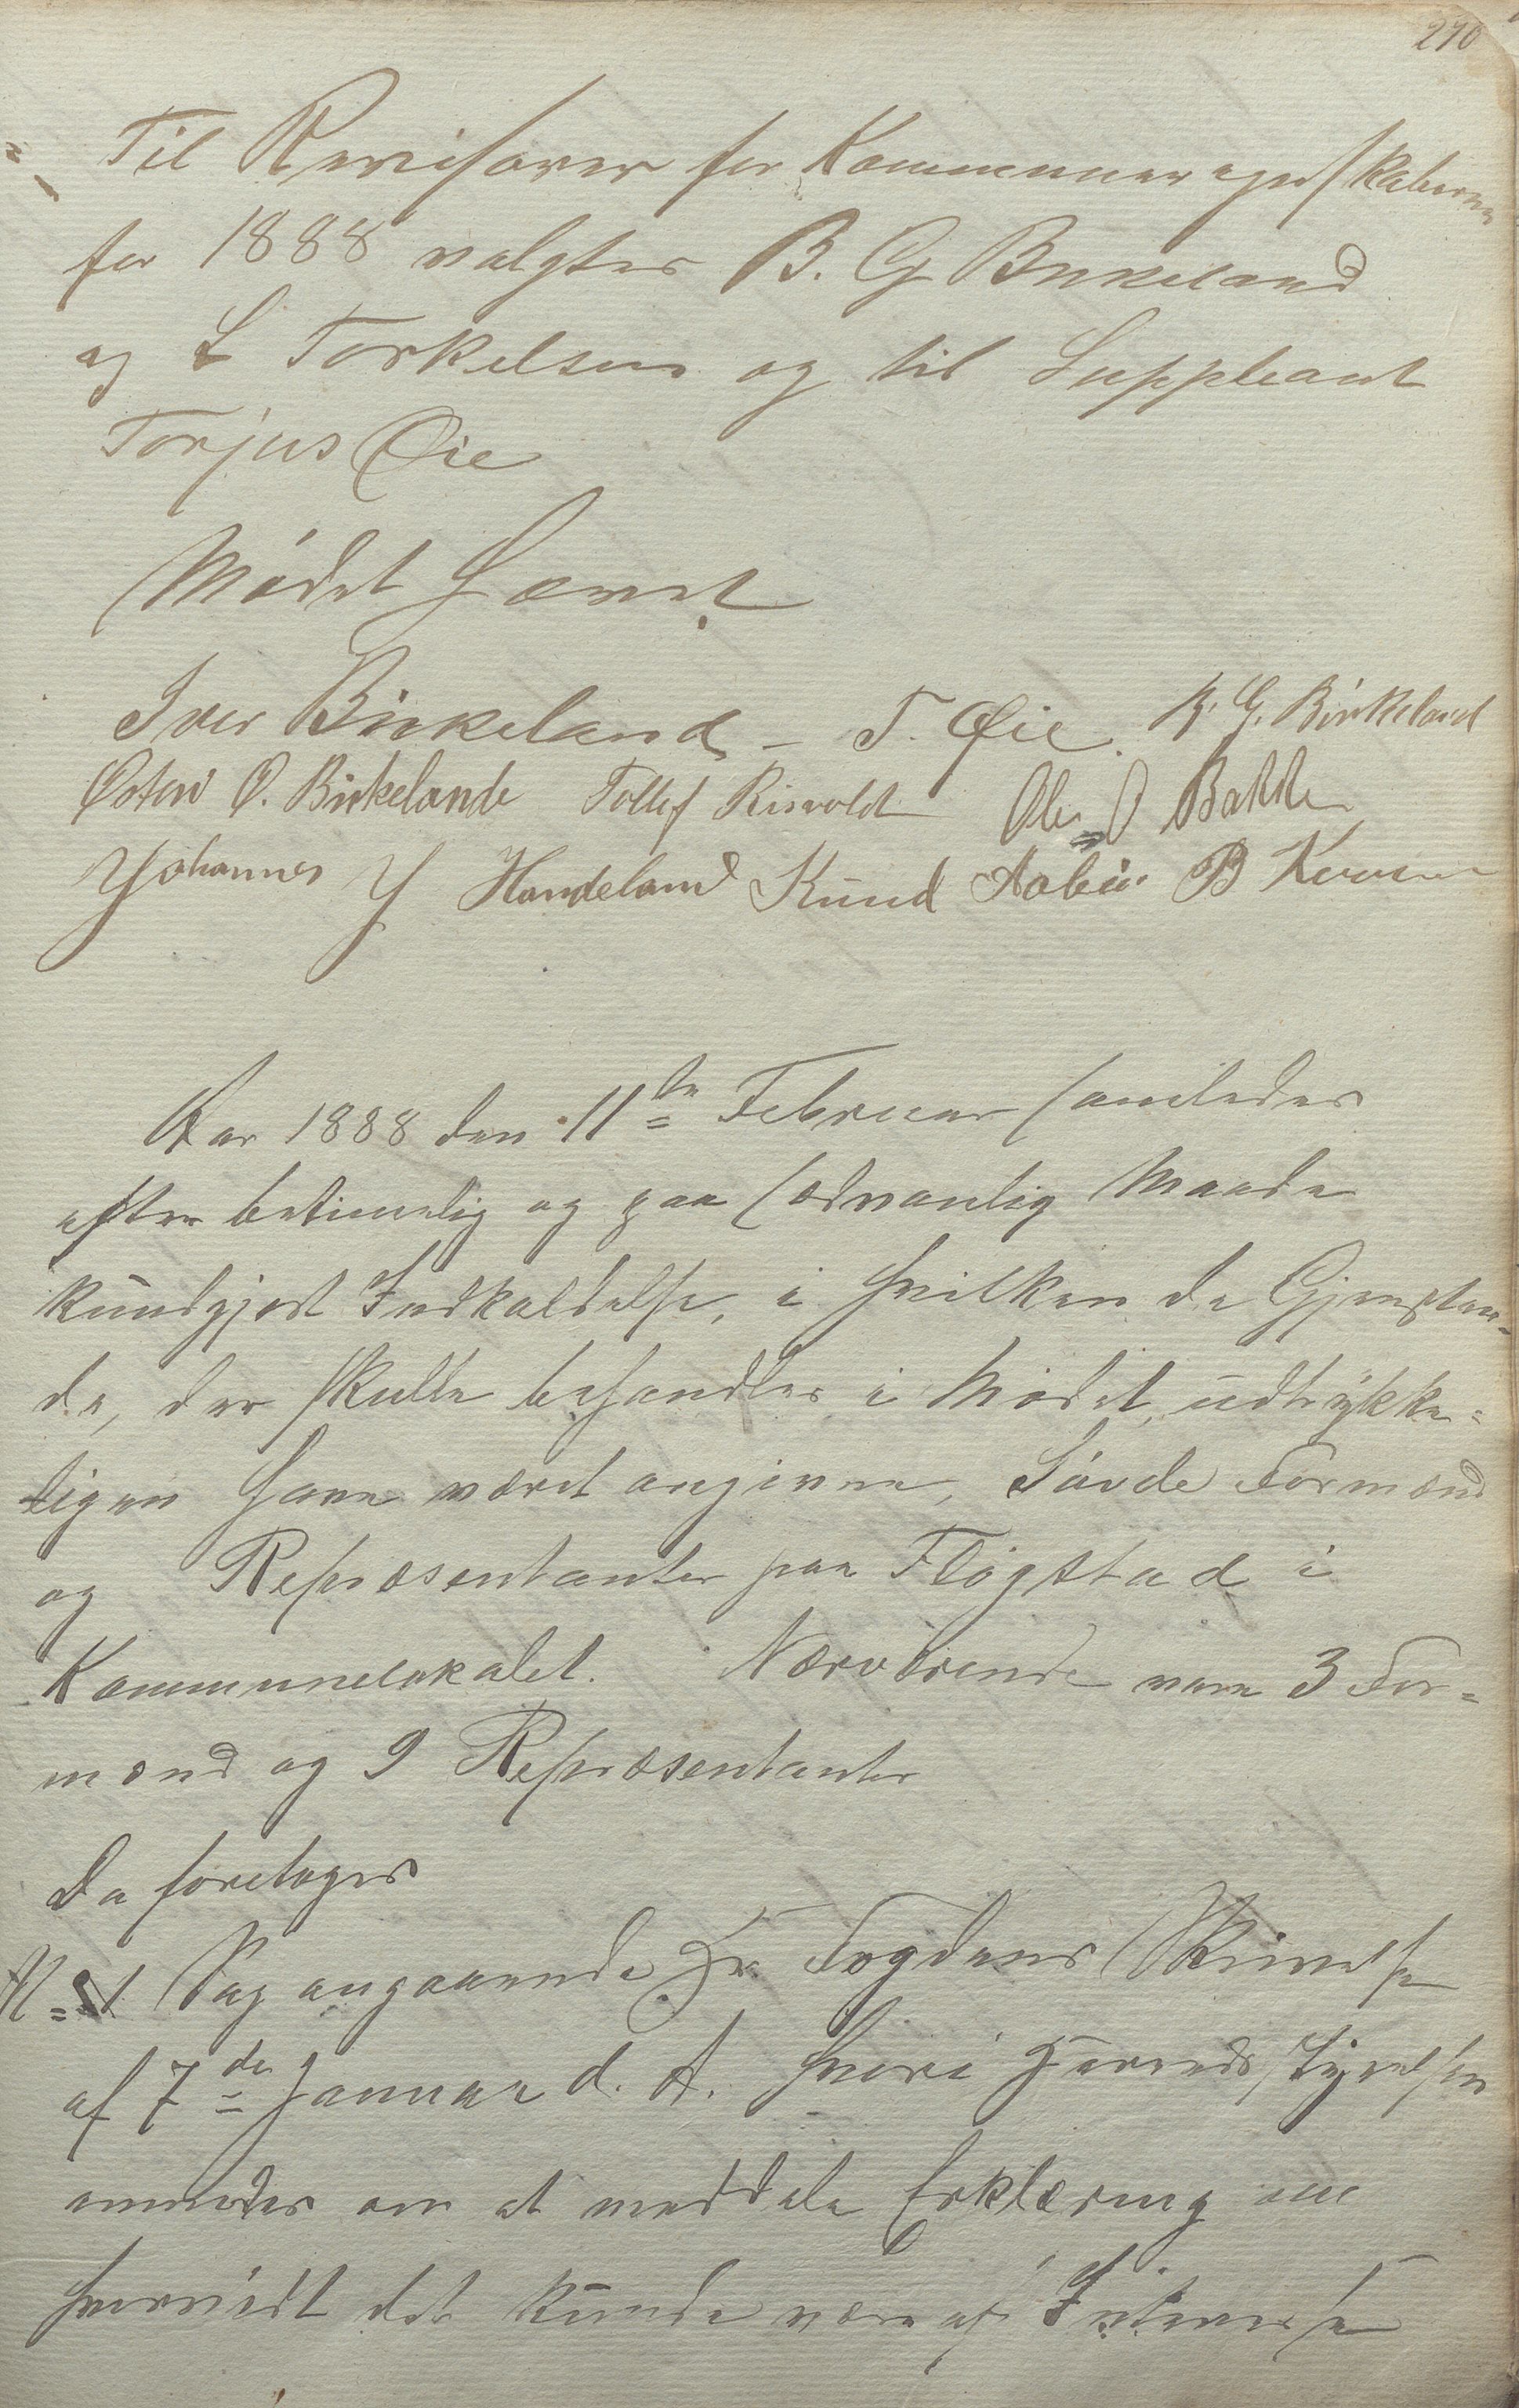 270
Til Revisorer for Kommuneregnskaberne
for 1888 valgtes B. G Birkeland
og L Torkelsen og til Suppleant
Torjus Øie
Mødet hævet
Iver Birkeland - T. Øie. B. G. Birkeland
Østen O. Birkelande Tollef Risvold Ole O Bakke
Johannes J Handeland Knud Aabø B
Aar 1888 den 11te Februar samledes
efter betimelig og paa sædvanlig Maade
kundgjort Indkaldelse, i hvilken de Gjenstan-
de, der skulle behandles i Mødet, udtrykke-
ligen have været angivne, Søvde Formænd
og Repræsentanter paa Fløgstad i
Kommunelokalet. Nærværende vare 3 For-
mænd og 9 Repræsentanter
Da foretoges
N= 1 Sag angaaende Hr. Fogdens Skrivelse
af 7de Januar d. A. hvori Herredsstyrelsen
anmodes om at meddele Erklæring om
hvorvidt det kunde være af Interesse